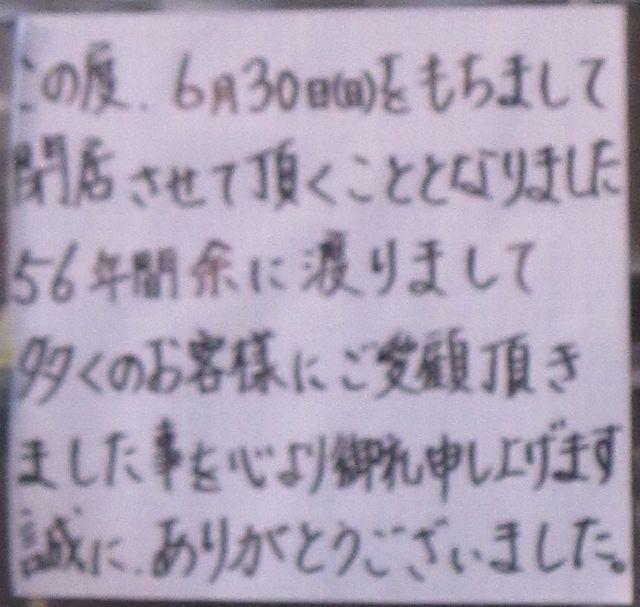 この度、6月30日(日)をもちまして
閉店させて頂くこととなりました
56年間余に渡りまして
多くのお客様にご愛顧頂き
ました事を心より御礼申し上げます
誠に、ありがとうございました。